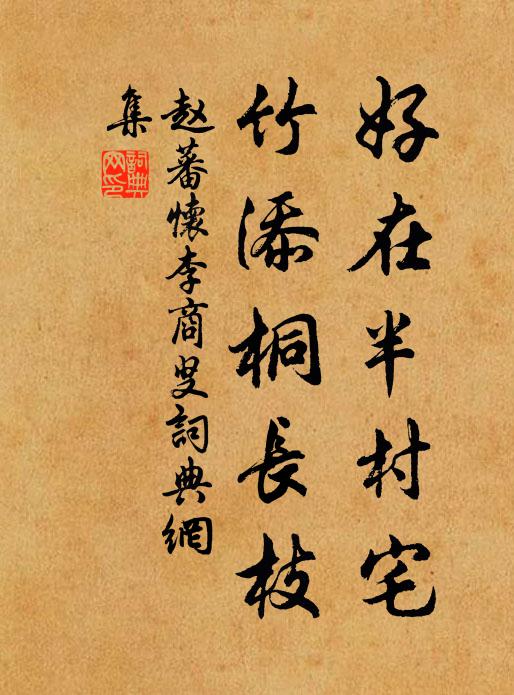 好在半村宅
竹添桐長枝
赵蕃懷李商叟詞典網
集
詞典网印